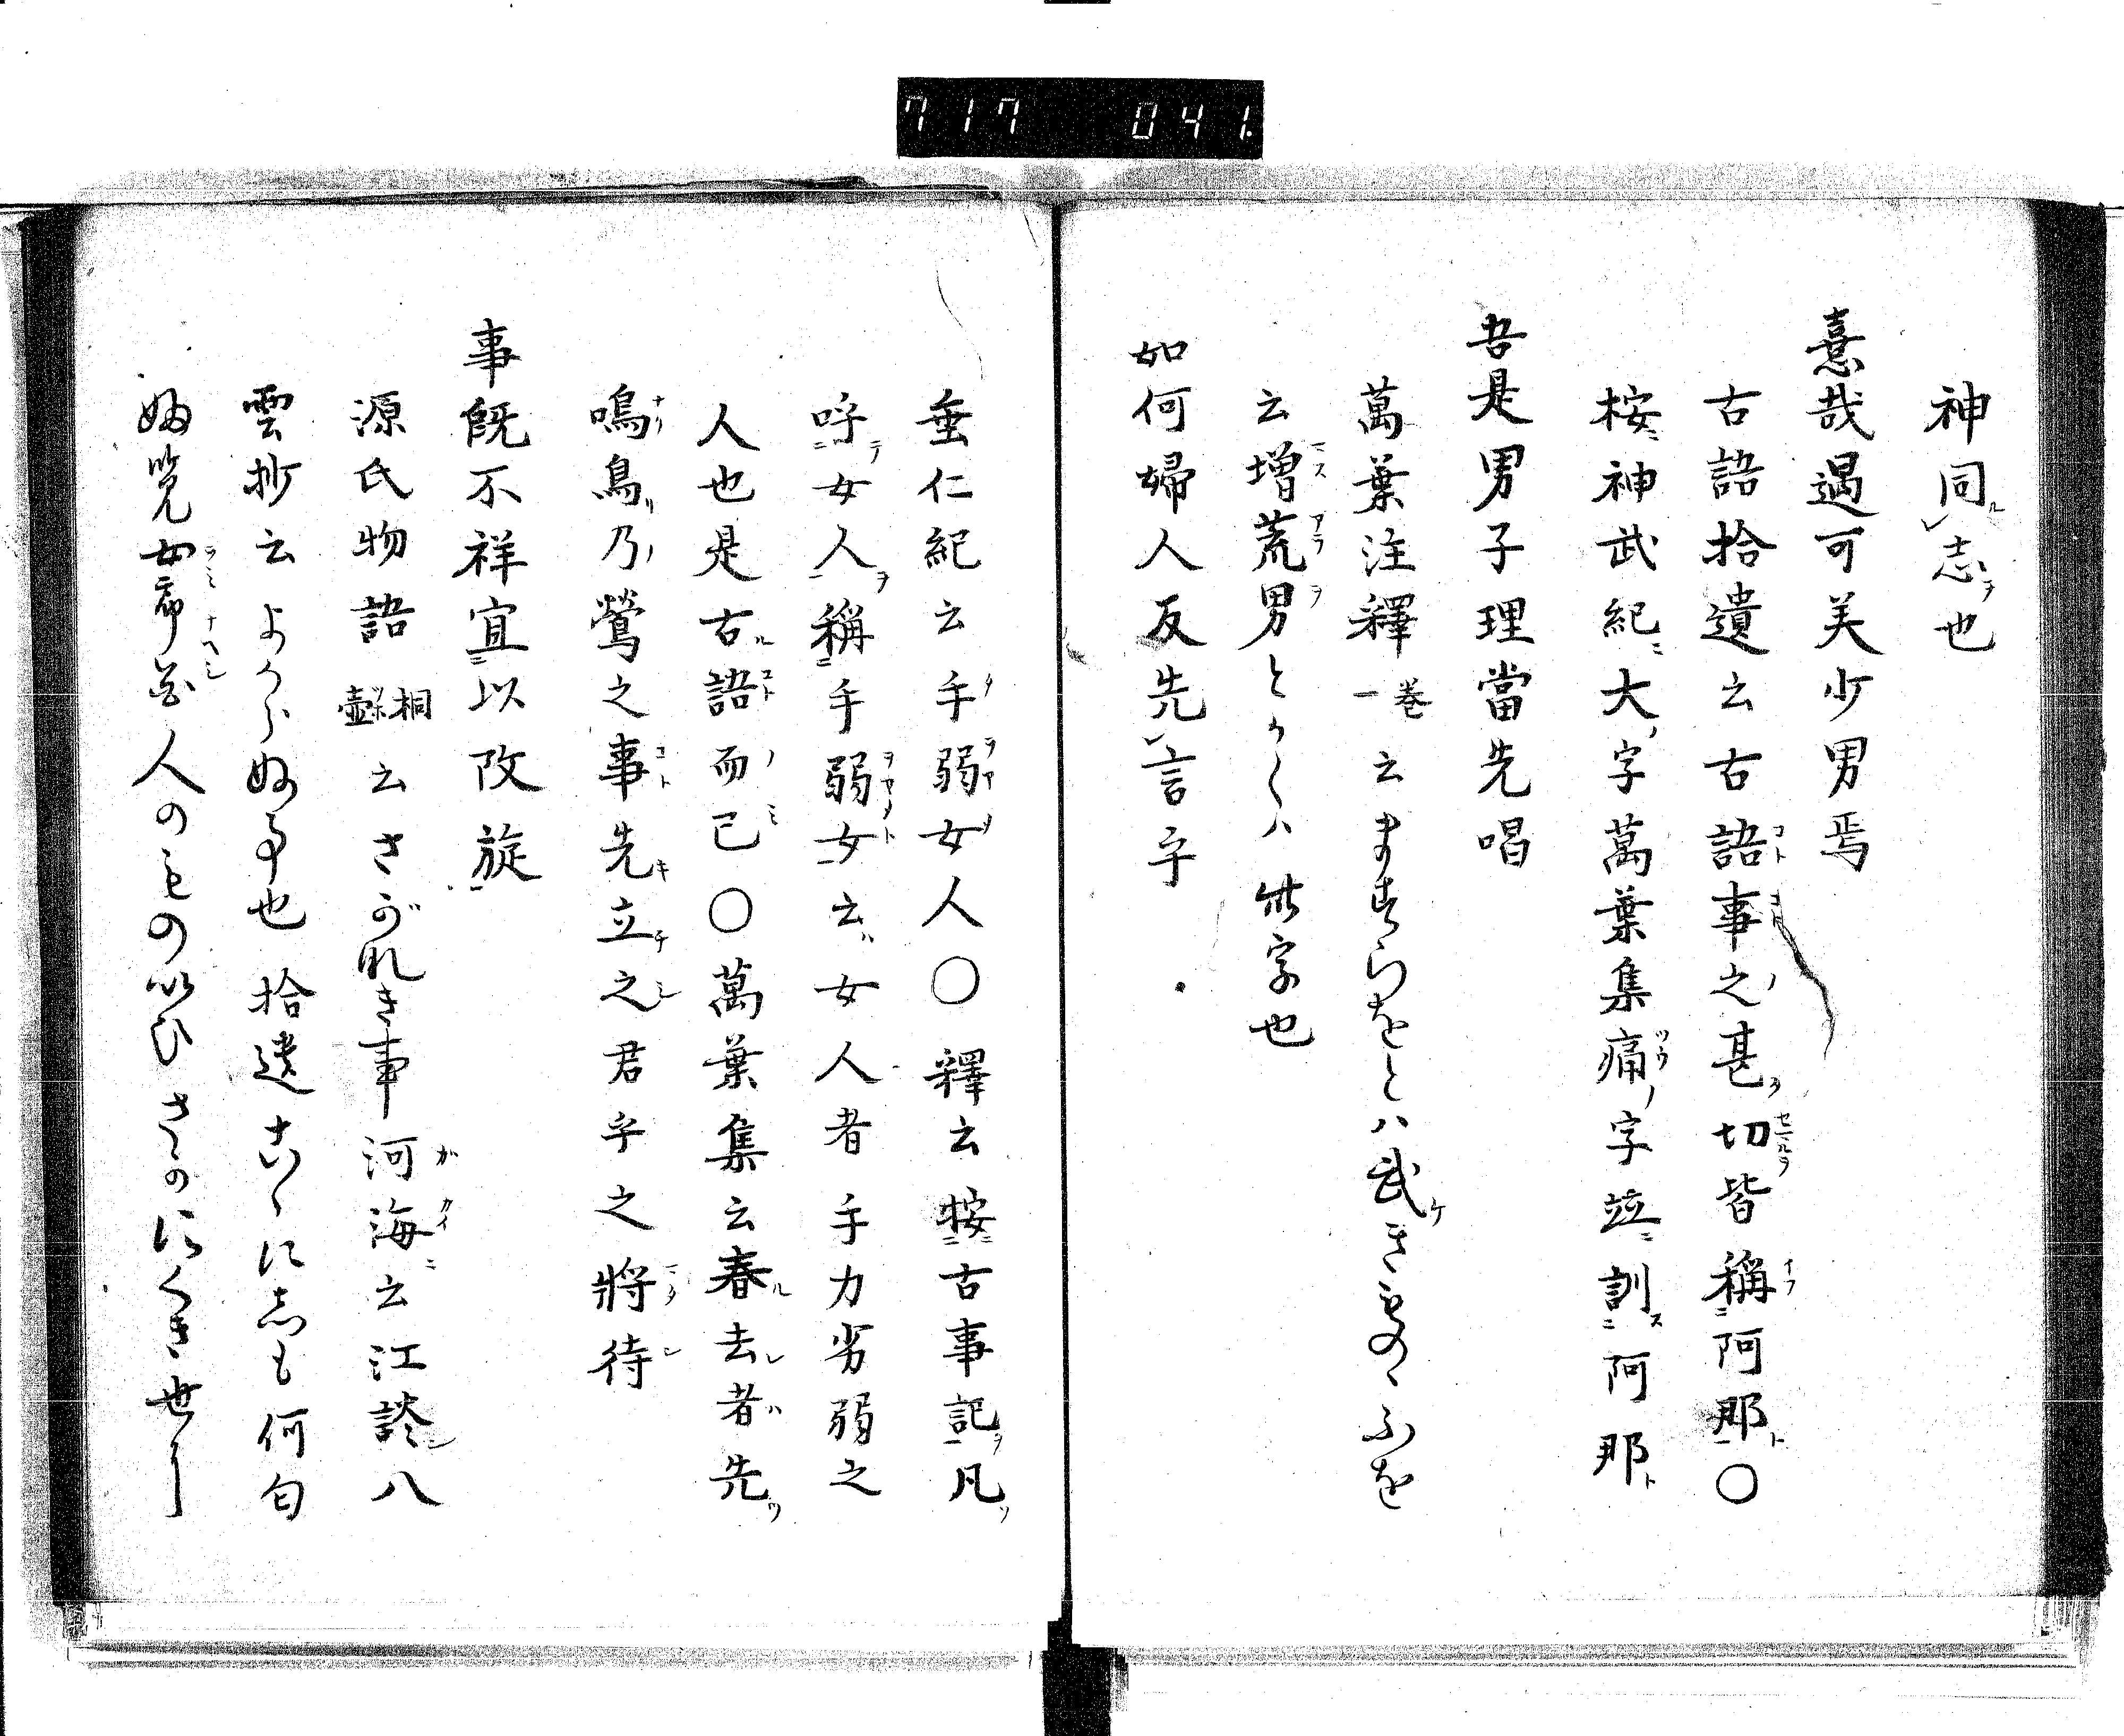 717 041.
神同志也
憙哉遇可美少男焉
古語拾遺云古語事之甚切皆稱阿那〇
桉神武紀大字萬葉集痛字並訓阿那
吾是男子理當先唱
萬葉注釋一巻云ますらをとハ武きものゝふを
云増荒男とかくハ此字也
如何婦人反先言乎
垂仁紀云手弱女人〇釋云桉古事記凡
呼女人稱手弱女云女人者手力劣弱之
人也是古語而已〇萬葉集云春去者先
鳴鳥乃鶯之事先立之君乎之將待
事旣不祥宜以改旋
源氏物語桐壷云さがれき事河海云江談八
雲抄云よからぬ事也拾遺こゝにしも何匂
ぬ覧女郎花人のもの以ひさかにくき世に